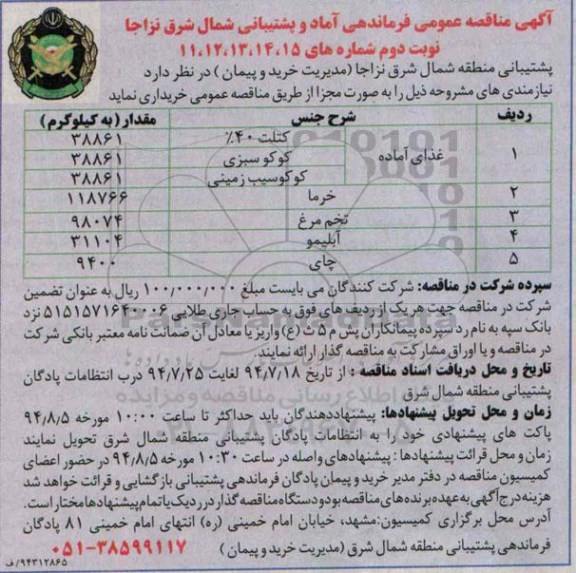 آگهی مناقصه عمومی فرماندهی آماد و پشتیبانی شمال شرق نزاجا
نوبت دوم شماره های ۱۱،۱۲،۱۳،۱۴،۱۵
پشتیبانی منطقه شمال شرق نزاجا (مدیریت خرید و پیمان) در نظر دارد
نیازمندی های مشروحه ذیل را به صورت مجزا از طریق مناقصه عمومی خریداری نماید
ردیف شرح جنس مقدار (به کیلوگرم)
۱ غذای آماده کتلت ۴۰٪ ۳۸۸۶۱
کوکو سبزی ۳۸۸۶۱
کوکوسیب زمینی ۳۸۸۶۱
۲ خرما ۱۱۸۷۶۶
۳ تخم مرغ ۹۸۰۷۴
۴ آبلیمو ۳۱۱۰۴
۵ چای ۹۴۰۰
سپرده شرکت در مناقصه: شرکت کنندگان می بایست مبلغ ۱۰۰/۰۰۰/۰۰۰ ریال به عنوان تضمین
شرکت در مناقصه جهت هر یک از ردیف های فوق به حساب جاری طلایی ۵۱۵۱۵۷۱۶۴۰۰۰۶ نزد
بانک سپه به نام رد سپرده پیمانکاران پش م ۵ ث (ع) واریز یا معادل آن ضمانت نامه معتبر بانکی شرکت
در مناقصه و یا اوراق مشارکت به مناقصه گذار ارائه نمایند.
تاریخ و محل دریافت اسناد مناقصه : از تاریخ ۹۴/۷/۱۸ لغایت ۹۴/۷/۲۵ درب انتظامات پادگان
پشتیبانی منطقه شمال شرق
زمان و محل تحویل پیشنهادها: پیشنهاددهندگان باید حداکثر تا ساعت ۱۰:۰۰ مورخه ۹۴/۸/۵
پاکت های پیشنهادی خود را به انتظامات پادگان پشتیبانی منطقه شمال شرق تحویل نمایند
زمان و محل قرائت پیشنهادها : پیشنهادهای واصله در ساعت ۱۰:۳۰ مورخه ۹۴/۸/۵ در حضور اعضای
کمیسیون مناقصه در دفتر مدیر خرید و پیمان پادگان فرماندهی پشتیبانی بازگشایی و قرائت خواهد شد
هزینه درج آگهی به عهده برنده های مناقصه بوده و دستگاه مناقصه گذار در رد یک یا تمام پیشنهادها مختار است.
آدرس محل برگزاری کمیسیون: مشهد، خیابان امام خمینی (ره) انتهای امام خمینی ۸۱ پادگان
فرماندهی پشتیبانی منطقه شمال شرق (مدیریت خرید و پیمان) ۰۵۱-۳۸۵۹۹۱۱۷
۹۴۳۱۲۸۶۵/ف